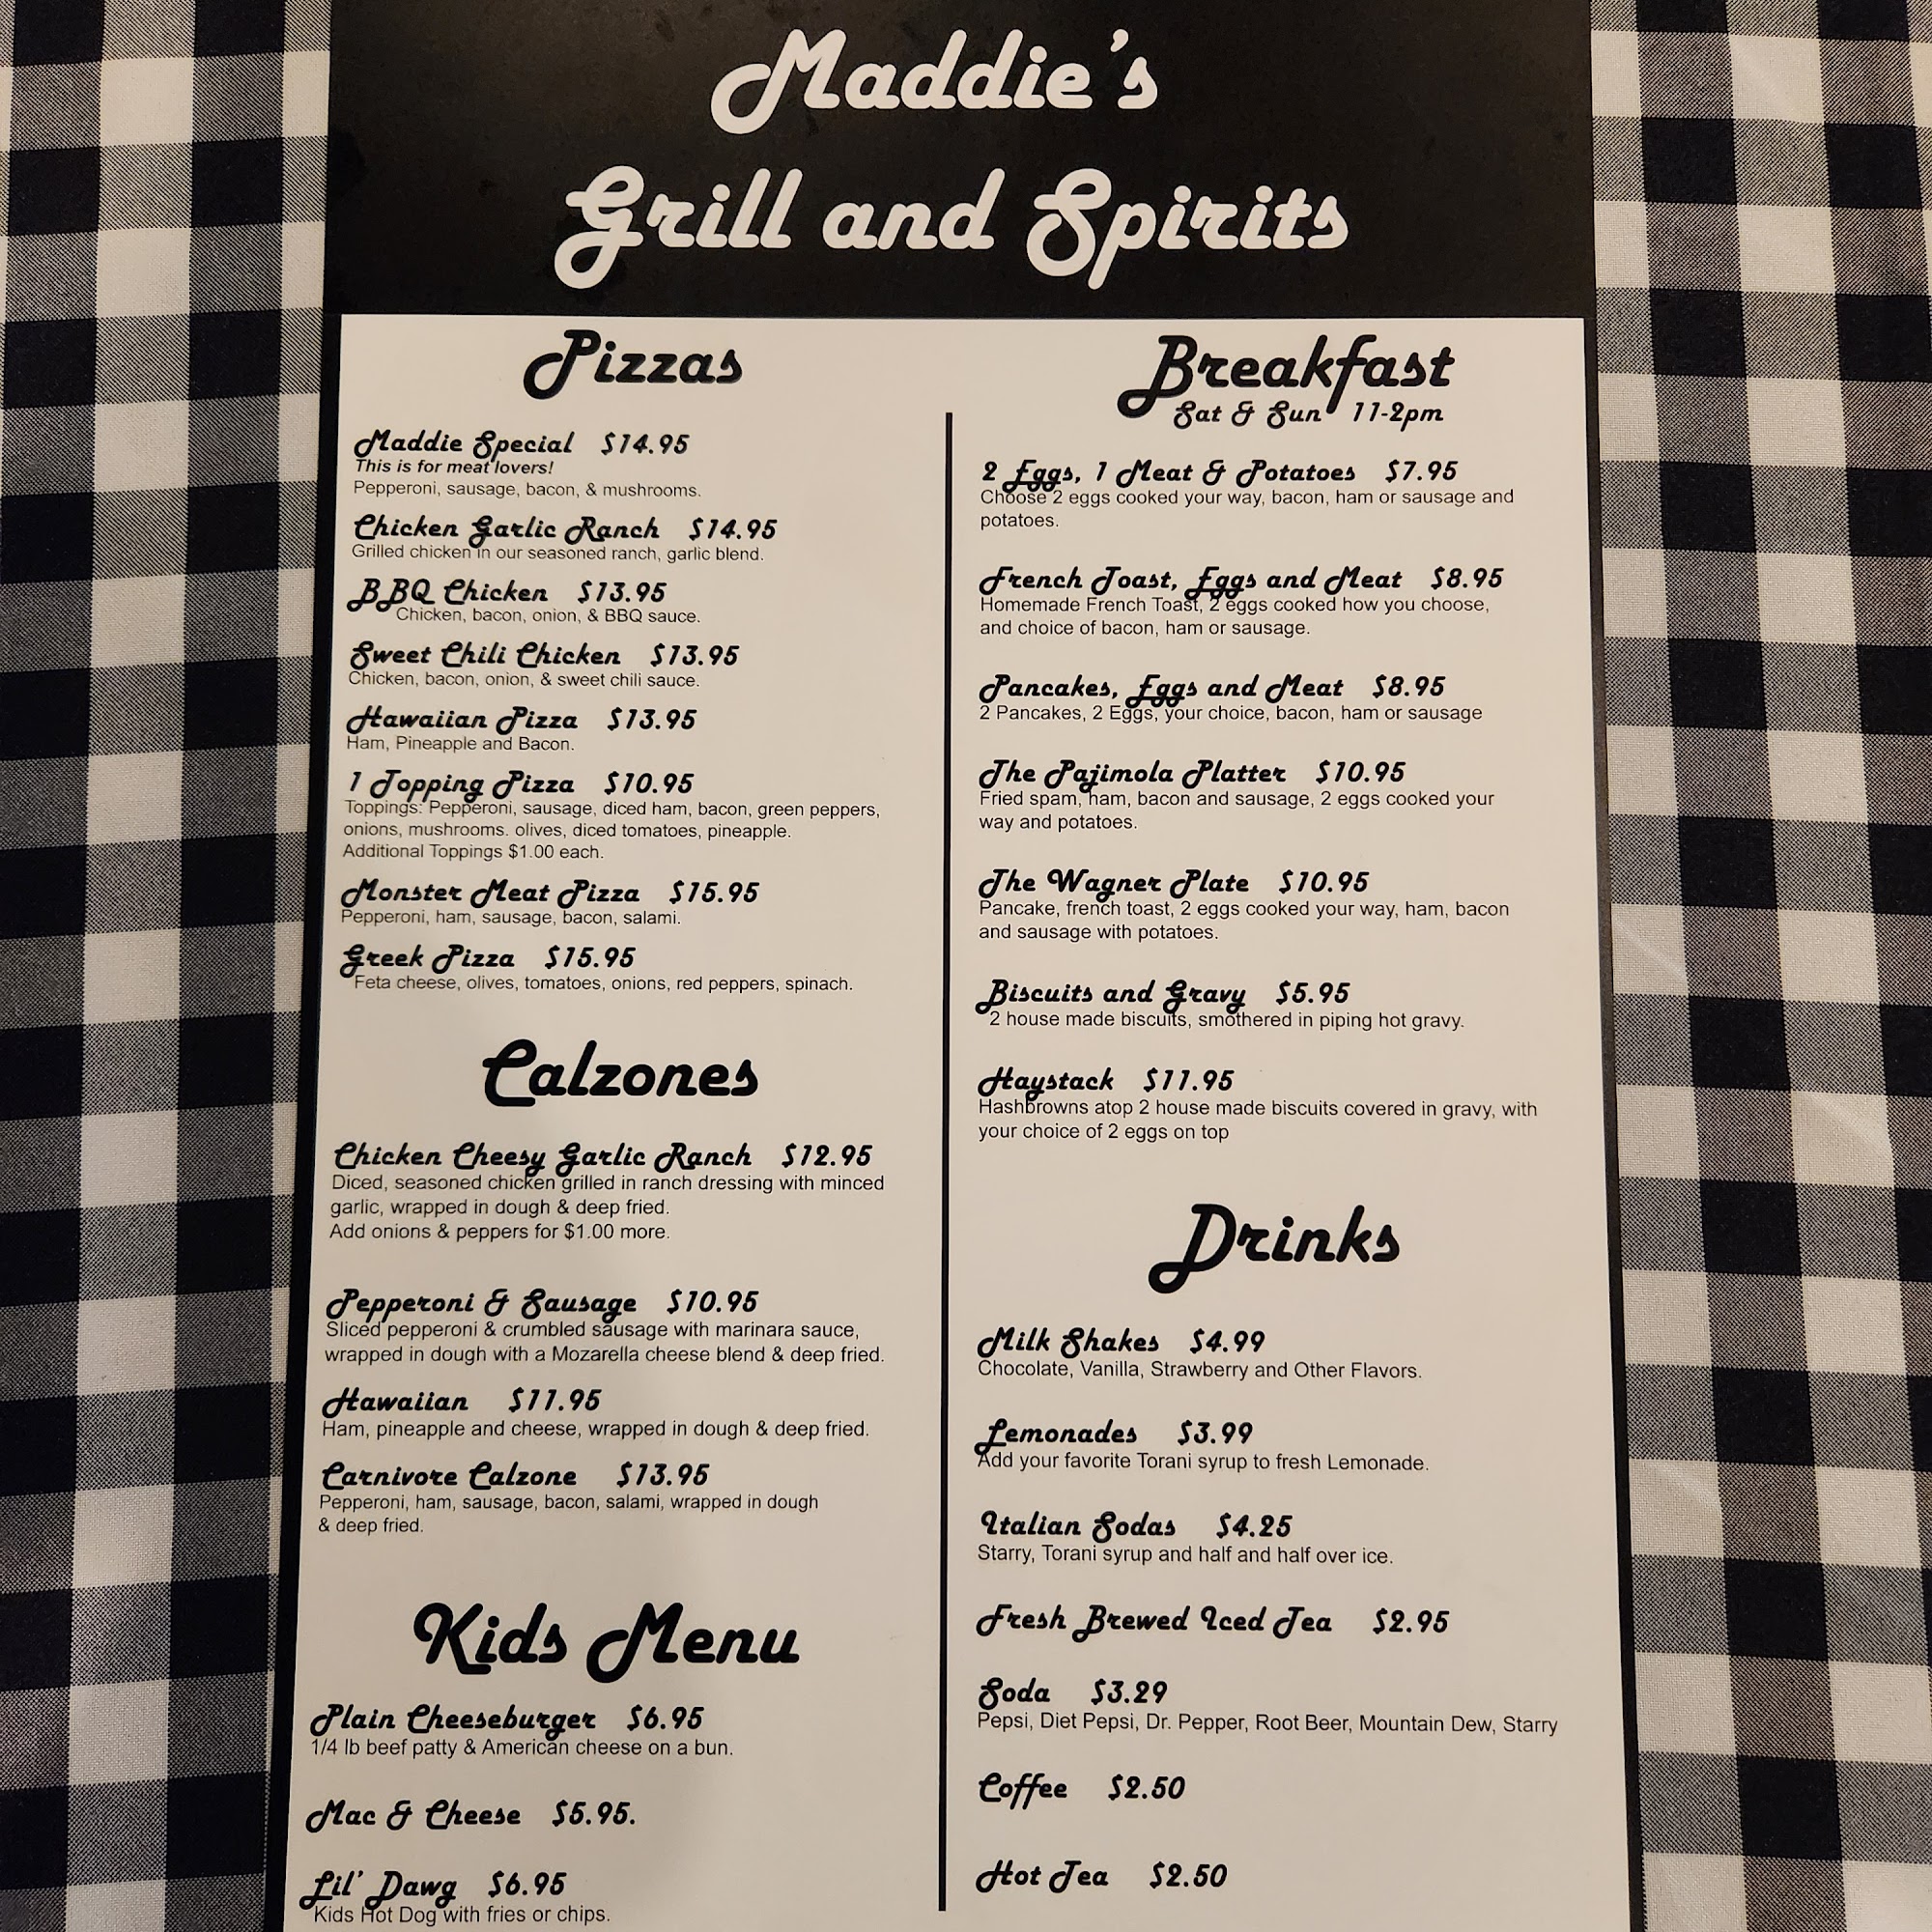 Maddie's
Grill and Spirits
Pizzas
Maddie Special $14.95
This is for meat lovers!
Pepperoni, sausage, bacon, & mushrooms.
Chicken Garlic Ranch $14.95
Grilled chicken in our seasoned ranch, garlic blend.
BBQ Chicken $13.95
Chicken, bacon, onion, & BBQ sauce.
Sweet Chili Chicken $13.95
Chicken, bacon, onion, & sweet chili sauce.
Hawaiian Pizza $13.95
Ham, Pineapple and Bacon.
1 Topping Pizza $10.95
Toppings: Pepperoni, sausage, diced ham, bacon, green peppers,
onions, mushrooms. olives, diced tomatoes, pineapple.
Additional Toppings $1.00 each.
Monster Meat Pizza $15.95
Pepperoni, ham, sausage, bacon, salami.
Greek Pizza $15.95
Feta cheese, olives, tomatoes, onions, red peppers, spinach.
Calzones
Chicken Cheesy Garlic Ranch $12.95
Diced, seasoned chicken grilled in ranch dressing with minced
garlic, wrapped in dough & deep fried.
Add onions & peppers for $1.00 more.
Pepperoni & Sausage $10.95
Sliced pepperoni & crumbled sausage with marinara sauce,
wrapped in dough with a Mozarella cheese blend & deep fried.
Hawaiian $11.95
Ham, pineapple and cheese, wrapped in dough & deep fried.
Carnivore Calzone $13.95
Pepperoni, ham, sausage, bacon, salami, wrapped in dough
& deep fried.
Kids Menu
Plain Cheeseburger $6.95
1/4 lb beef patty & American cheese on a bun.
Mac & Cheese $5.95.
Lil' Dawg $6.95
Kids Hot Dog with fries or chips.
Breakfast
Sat & Sun 11-2pm
2 Eggs, 1 Meat & Potatoes $7.95
Choose 2 eggs cooked your way, bacon, ham or sausage and
potatoes.
French Toast, Eggs and Meat $8.95
Homemade French Toast, 2 eggs cooked how you choose,
and choice of bacon, ham or sausage.
Pancakes, Eggs and Meat $8.95
2 Pancakes, 2 Eggs, your choice, bacon, ham or sausage
The Pajimola Platter $10.95
Fried spam, ham, bacon and sausage, 2 eggs cooked your
way and potatoes.
The Wagner Plate $10.95
Pancake, french toast, 2 eggs cooked your way, ham, bacon
and sausage with potatoes.
Biscuits and Gravy $5.95
2 house made biscuits, smothered in piping hot gravy.
Haystack $11.95
Hashbrowns atop 2 house made biscuits covered in gravy, with
your choice of 2 eggs on top
Drinks
Milk Shakes $4.99
Chocolate, Vanilla, Strawberry and Other Flavors.
Lemonades $3.99
Add your favorite Torani syrup to fresh Lemonade.
Italian Sodas $4.25
Starry, Torani syrup and half and half over ice.
Fresh Brewed Iced Tea $2.95
Soda $3.29
Pepsi, Diet Pepsi, Dr. Pepper, Root Beer, Mountain Dew, Starry
Coffee $2.50
Hot Tea $2.50